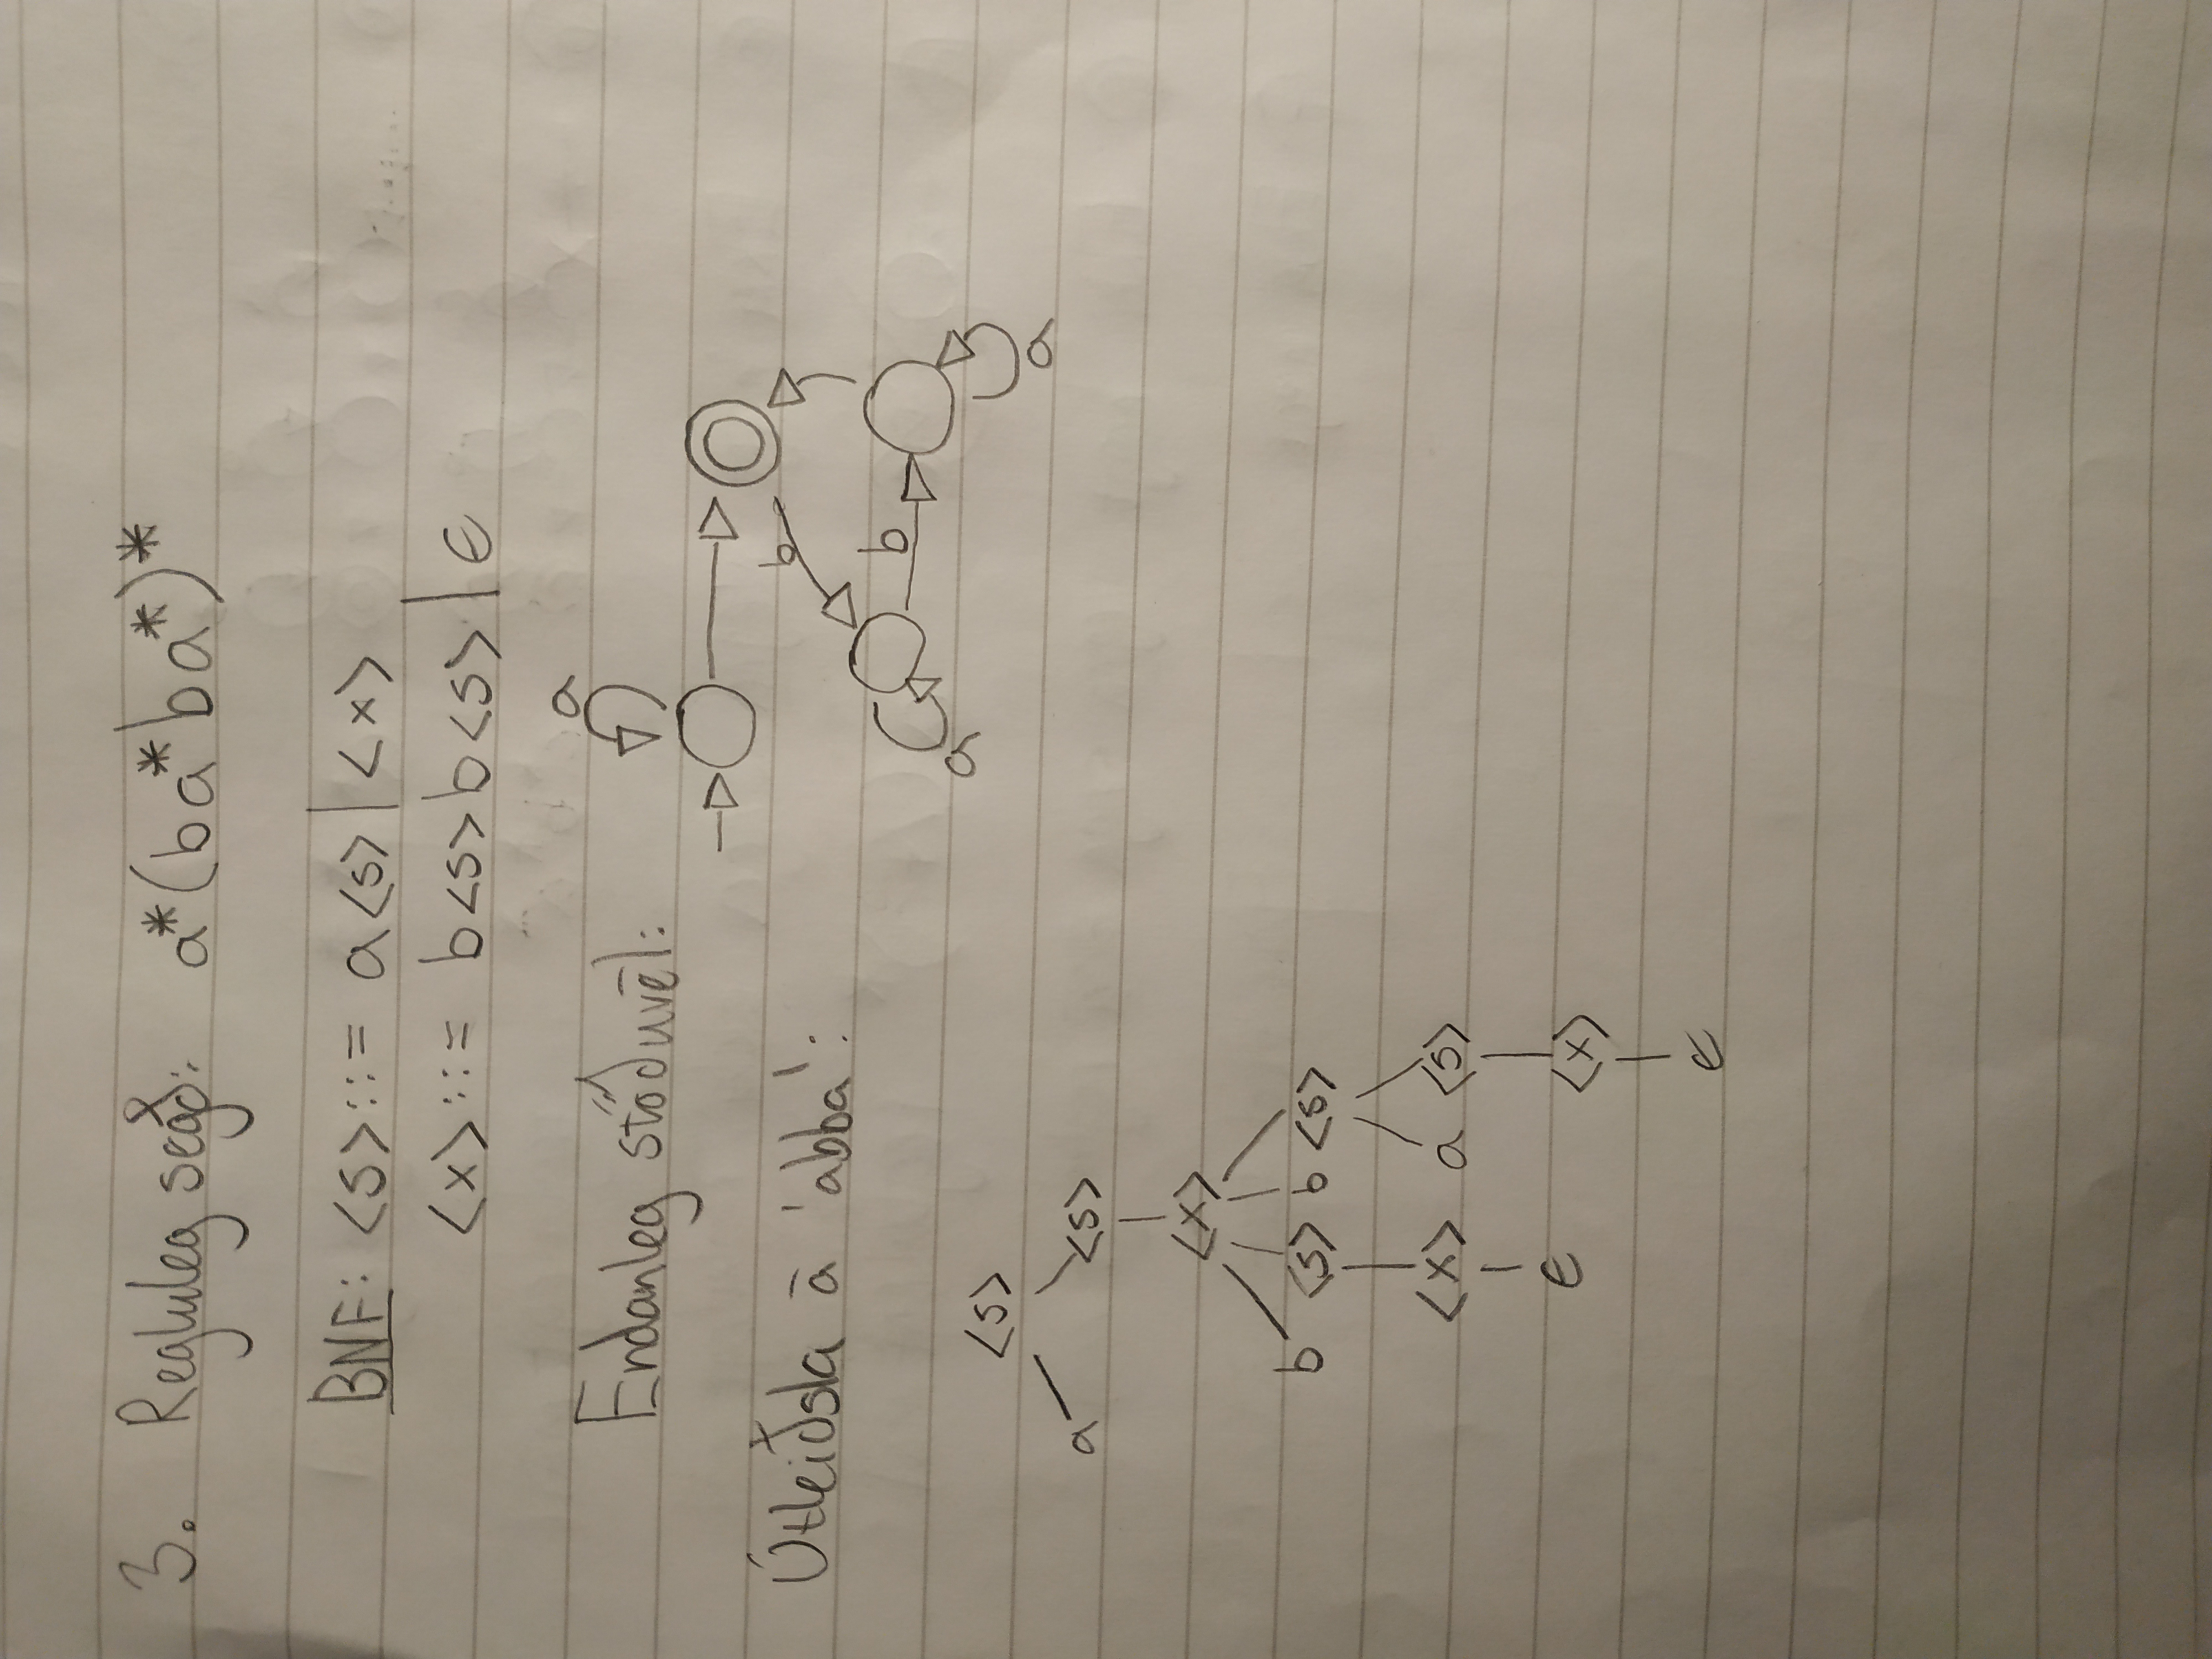 3. Regluleg segð: a*(ba*ba*)*
BNF: <S>::= a<S>|<x>
<x>::= b<S>b<S>|ϵ
Endanleg stöðuvél:
a
b
b
a
a
Útleiðsla á 'abba':
<S>
a <S>
<x>
b <S> b <S>
<x> a <S>
ϵ <x>
ϵ